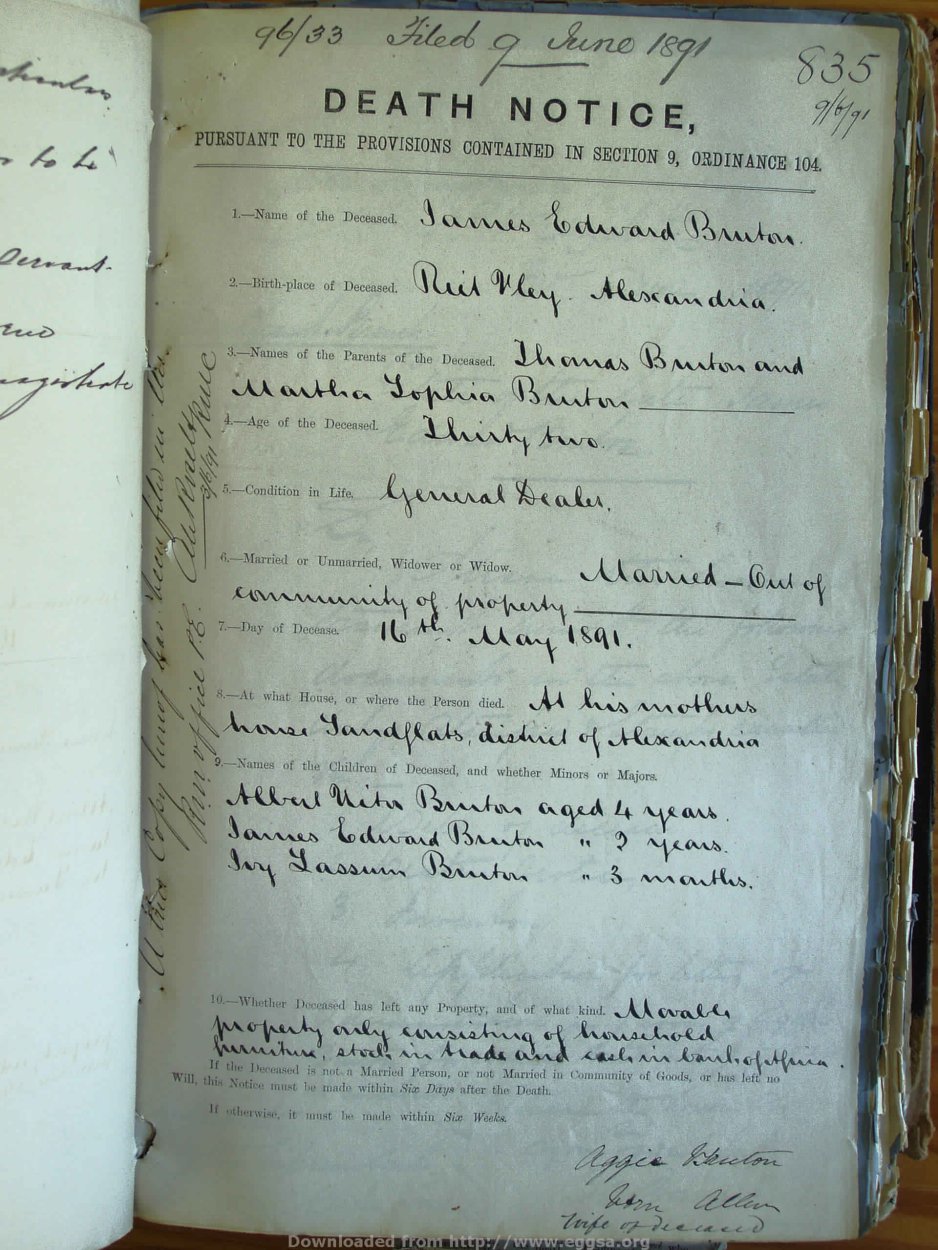 96/33 Filed 9 June 1891
835
9/6/91
DEATH NOTICE,
PURSUANT TO THE PROVISIONS CONTAINED IN SECTION 9, ORDINANCE 104.
1.—Name of the Deceased. James Edward Bruton.
2.—Birth-place of Deceased. Riet Vley. Alexandria.
3.—Names of the Parents of the Deceased. Thomas Bruton and
Martha Sophia Bruton
4.—Age of the Deceased. Thirty two.
5.—Condition in Life. General Dealer.
6.—Married or Unmarried, Widower or Widow. Married – Out of
community of property
7.—Day of Decease. 16th. May 1891.
8.—At what House, or where the Person died. At his mothers
house Sandflats, district of Alexandria
9.—Names of the Children of Deceased, and whether Minors or Majors.
Albert Bruton aged 4 years.
James Edward Bruton " years.
Ivy Bruton " 3 months.
10.—Whether Deceased has left any Property, and of what kind. Movable
property only consisting of household
furniture, stock in trade and cash in bank of Africa.
If the Deceased is not a Married Person, or not Married in Community of Goods, or has left no
Will, this Notice must be made within Six Days after the Death.
If otherwise, it must be made within Six Weeks.
Aggie Bruton
born Allen
wife of deceased
A true Copy hereof has been filed in this
office P.E.
to be
servant
magistrate
Downloaded from http://www.eggsa.org